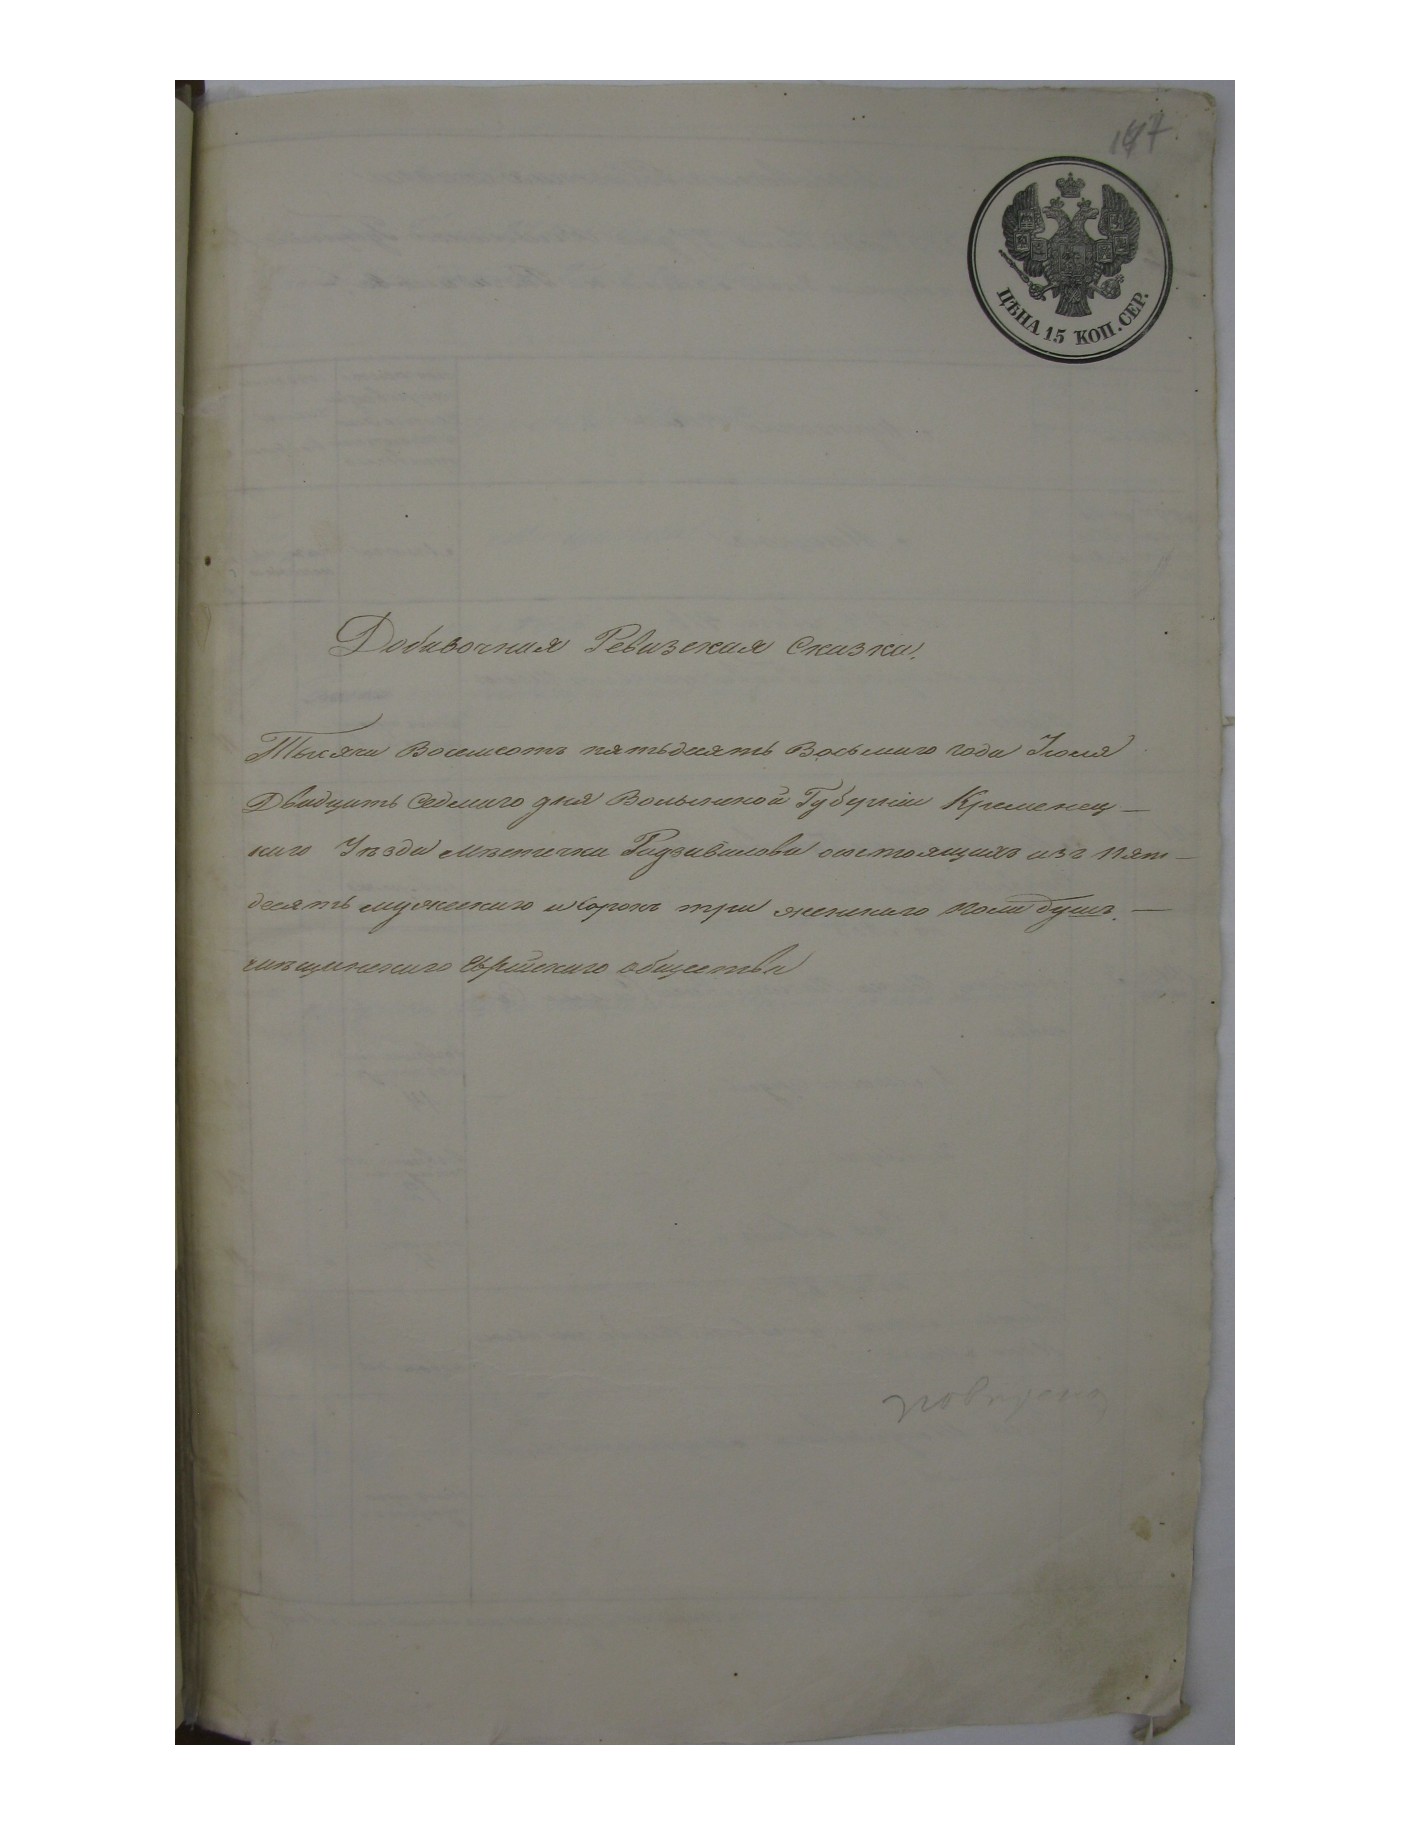 147.
ЦѢНА 15 КОП. СЕР.
Добавочная Ревизская Сказка.
Тысяча Восемсотъ пятьдесять Восьмаго года Іюля
Двадцать седмаго дня Волынской Губерніи Кременец-
каго Уѣзда мѣстечка Радзивилова состоящихъ изъ пят-
десять мужескаго и сорокъ три женскаго пола душъ. —
мѣщанскаго Еврейскаго общества